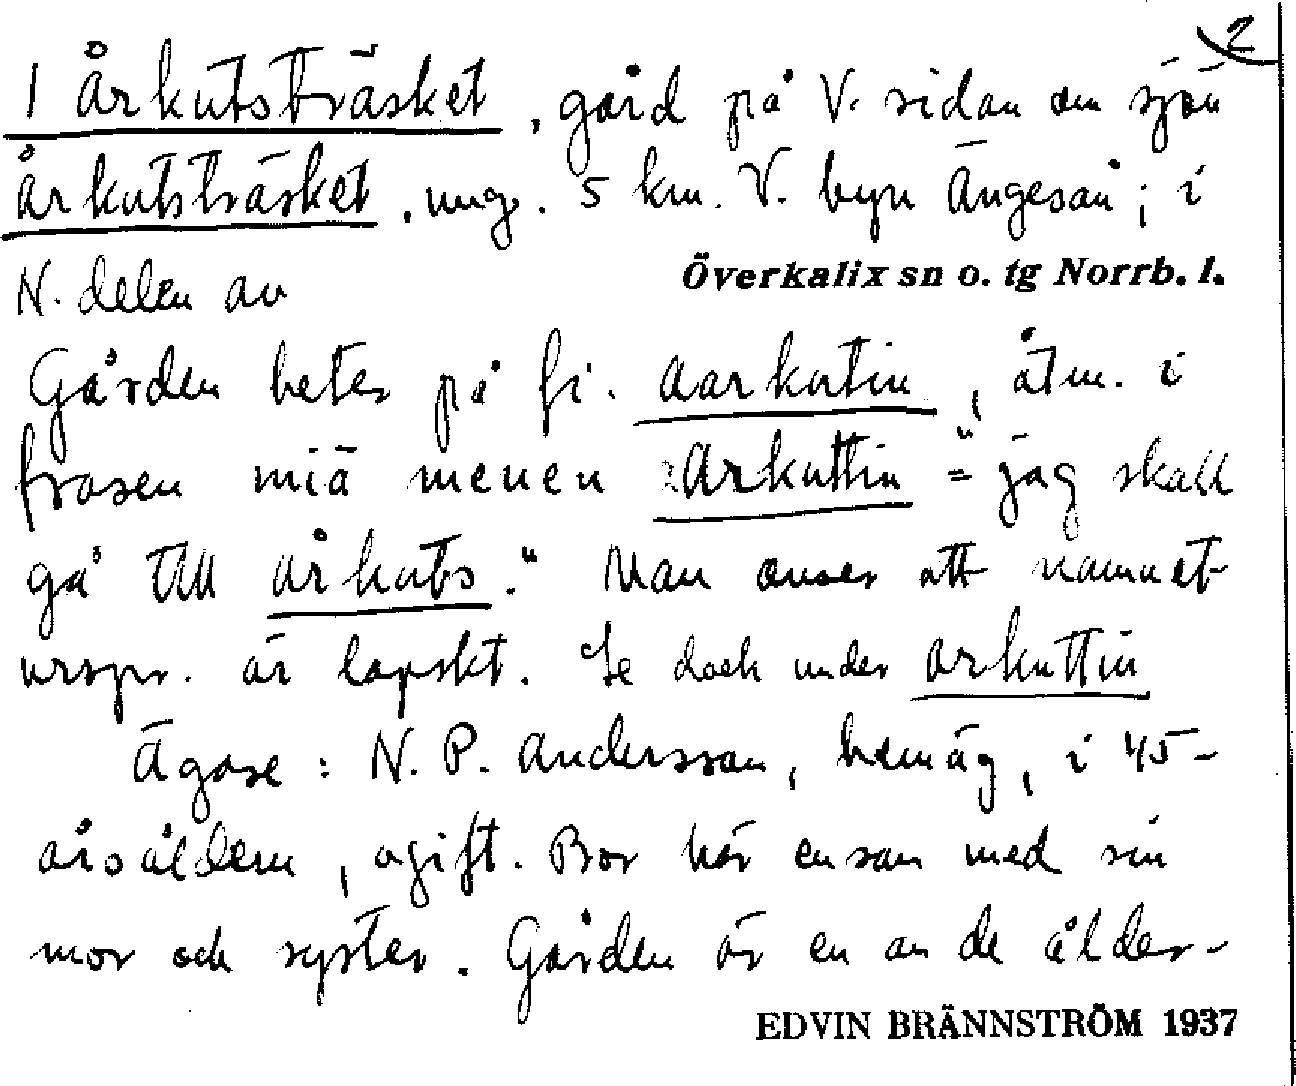 2
1 Årkutsträsket, gård på V. sidan om sjön
Årkutsträsket, ung. 5 km. V. byn Ängesån; i
N. delen av Överkalix sn o. tg Norrb. l.
Gården heter på fi. aarkutin, åtm. i
frasen miä menen Arkuttin = "jag skall
gå till årkuts." Man anser att namnet
urspr. är lapskt. Se dock under arkuttin
Ägare: N. P. Andersson, hemäg, i 45-
årsåldern, ogift. Bor här ensam med sin
mor och syster. Gården är en av de älder-
EDVIN BRÄNNSTRÖM 1937